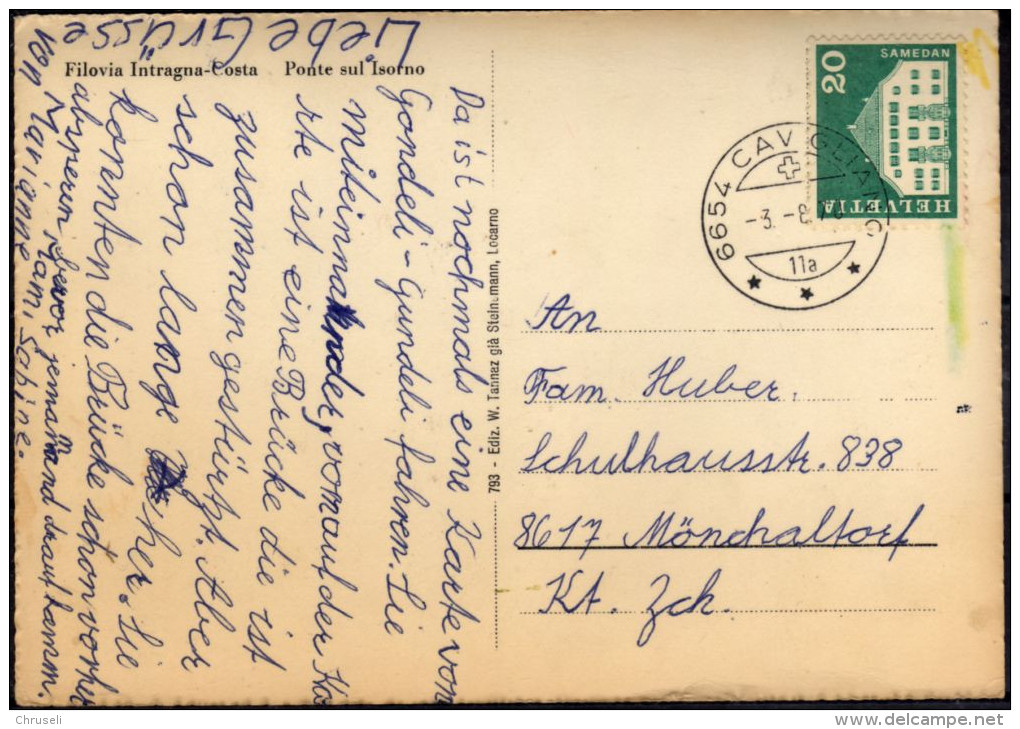 Filovia Intragna-Costa    Ponte sul Isorno
Da ist nochmals eine Karte vom
Gondeli-gundeli fahren. Sie
miteinnander, vorn auf der Ka
rte ist eine Brücke die ist
zusammengestürtzt. Aber
schon lange her. Sie
konnten die Brücke schon vorher
absperen bevor jemand drauf kamm.
Liebe Grüsse
von Marianne, Sabine.
793 - Ediz. W. Tannaz già Steinemann, Locarno
HELVETIA
20
SAMEDAN
6654 CAVIGLIANO
-3.-8.
11a
An
Fam. Huber.
Schulhausstr. 838
8617 Mönchaltorf
Kt. Zch.
Chruseli
www.delcampe.net